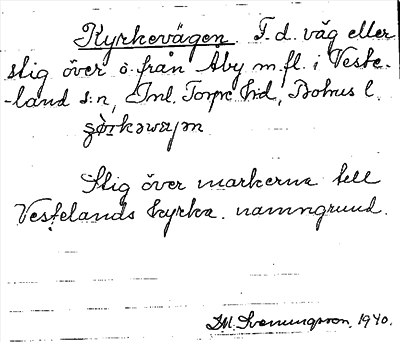 Kyrkevägen F.d. väg eller
stig över ö. från Åby m.fl. i Veste-
-land s:n, Inl. Torpe hd, Bohus l.
Stig över markerna till
Vestelands kyrka. namngrund.
1940.